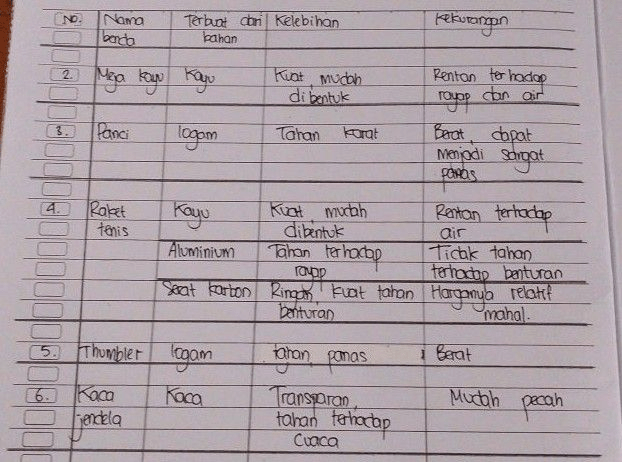 No. Nama Terbuat dari Kelebihan Kekurangan
benda bahan
2. Meja kayu Kayu Kuat, mudah Rentan terhadap
dibentuk rayap dan air
3. Panci logam Tahan karat Berat, dapat
Menjadi sangat
panas
4. Raket Kayu Kuat, mudah Rentan terhadap
tenis dibentuk air
Aluminium Tahan terhadap Tidak tahan
rayap terhadap benturan
Serat karbon Ringan, kuat tahan Harganya relatif
benturan mahal.
5. Thumbler logam tahan panas Berat
6. Kaca Kaca Transparan, Mudah pecah
jendela tahan terhadap
cuaca